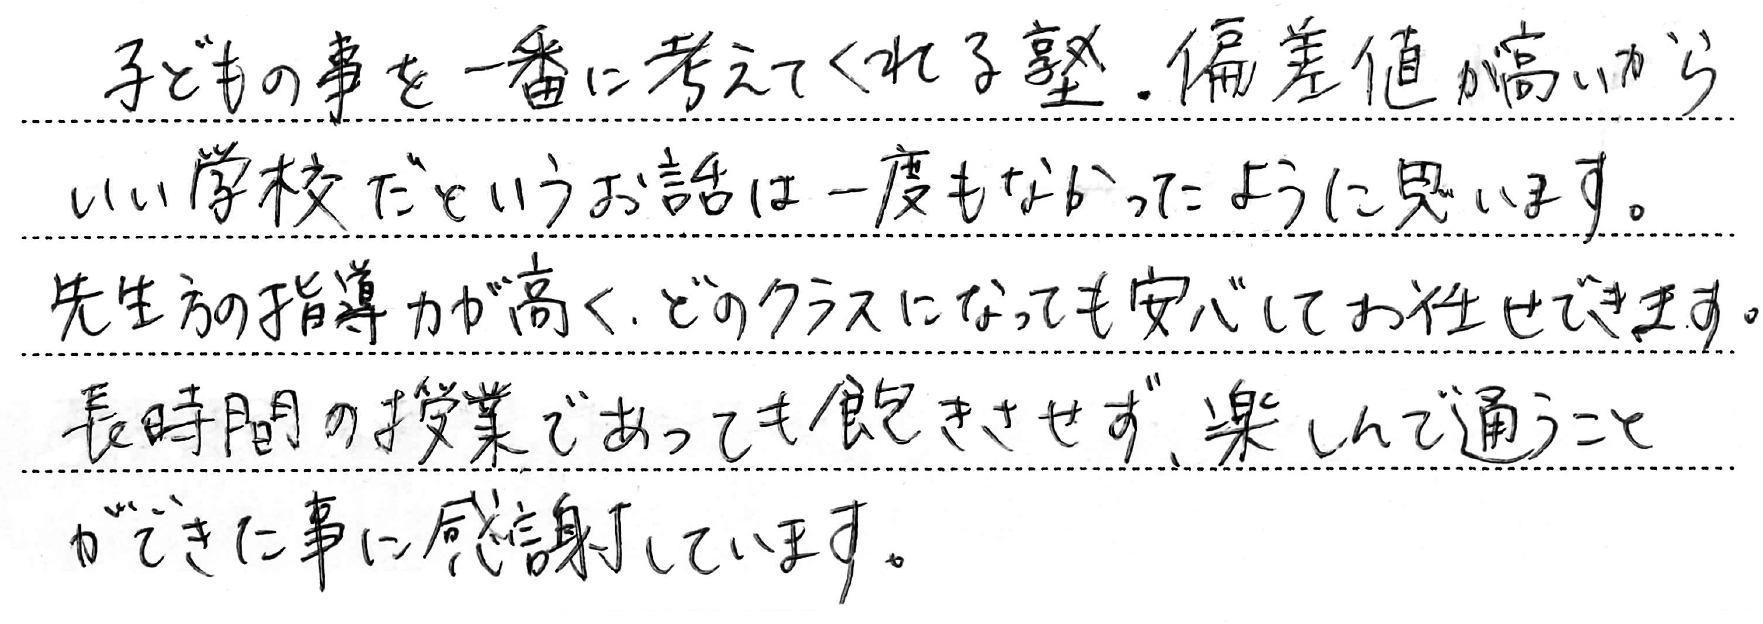 子どもの事を一番に考えてくれる塾.偏差値が高いから
いい学校だというお話は一度もなかったように思います。
先生方の指導力が高く、どのクラスになっても安心してお任せできます。
長時間の授業であっても飽きさせず、楽しんで通うこと
ができた事に感謝しています。